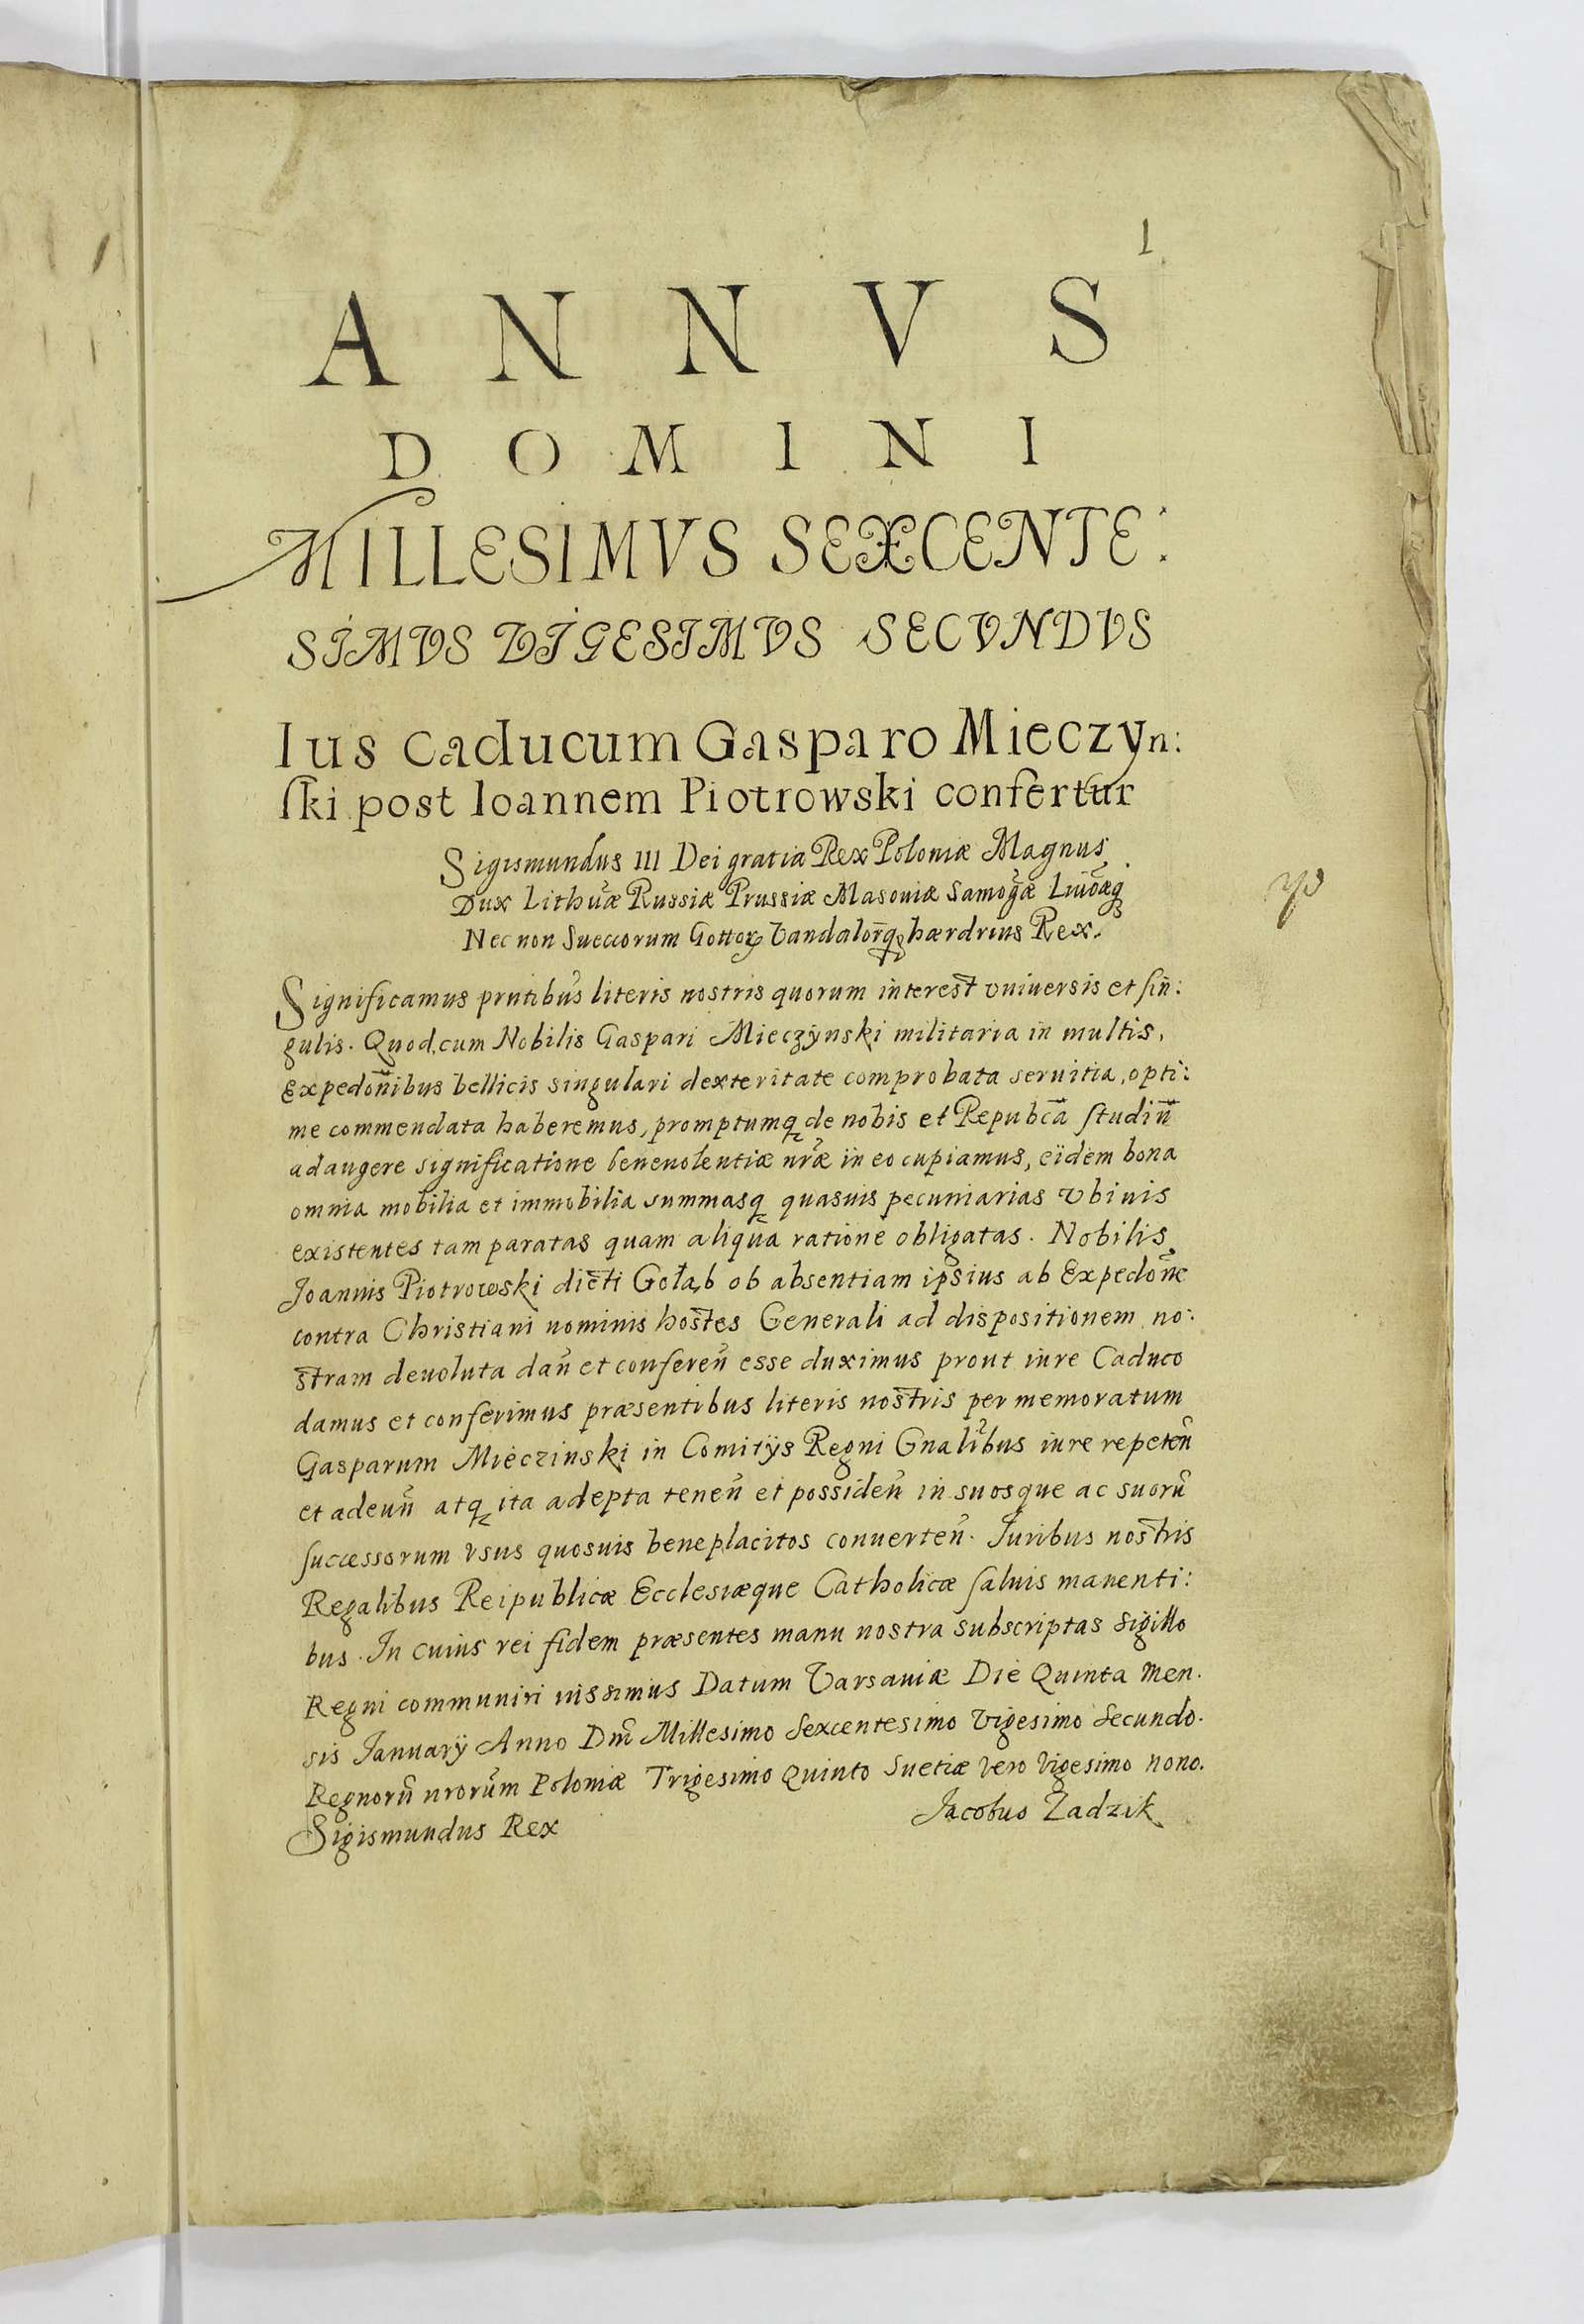 1
ANNVS
DOMINI
MILLESIMVS SEXCENTE:
SIMVS VIGESIMVS SECVNDVS
Ius Caducum Gasparo Mieczyn:
ski post Ioannem Piotrowski confertur
Sigismundus III Dei gratia Rex Poloniæ Magnus
Dux Lithuæ Russiæ Prussiæ Masouiæ Samogæ Liuoæq
Nec non Sueccorum Gottor Vandalorq hærdrius Rex.
Significamus pntibus literis nostris quorum interest vniuersis et sin:
gulis. Quod cum Nobilis Gaspari Mieczynski militaria in multis,
Expedonibus bellicis singulari dexteritate comprobata seruitia, opti:
me commendata haberemus, promptumq de nobis et Repubca studiu
adaugere significatione beneuolentiæ nræ in eo cupiamus, eidem bona
omnia mobilia et immobilia summasq quasuis pecuniarias vbiuis
existentes tam paratas quam aliqua ratione obligatas. Nobilis
Joannis Piotrowski dicti Gołąb ob absentiam ipsius ab Expedone
contra Christiani nominis hostes Generali ad dispositionem no:
stram deuoluta dan et conferen esse duximus prout iure Caduco
damus et conferimus præsentibus literis nostris per memoratum
Gasparum Mieczinski in Comitÿs Regni Gnalibus iure repeten
et adeun atq ita adepta tenen et possiden in suosque ac suoru
successorum vsus quosuis beneplacitos conuerten. Juribus nostris
Regalibus Reipublicæ Ecclesiæque Catholicæ saluis manenti:
bus. In cuius rei fidem præsentes manu nostra subscriptas Sigillo
Regni communiri iussimus Datum Varsauiæ Die Quinta Men.
sis Januarÿ Anno Dni Millesimo Sexcentesimo Vigesimo Secundo.
Regnoru nrorum Poloniæ Trigesimo Quinto Suetiæ vero Vigesimo nono.
Sigismundus Rex Jacobus Zadzik